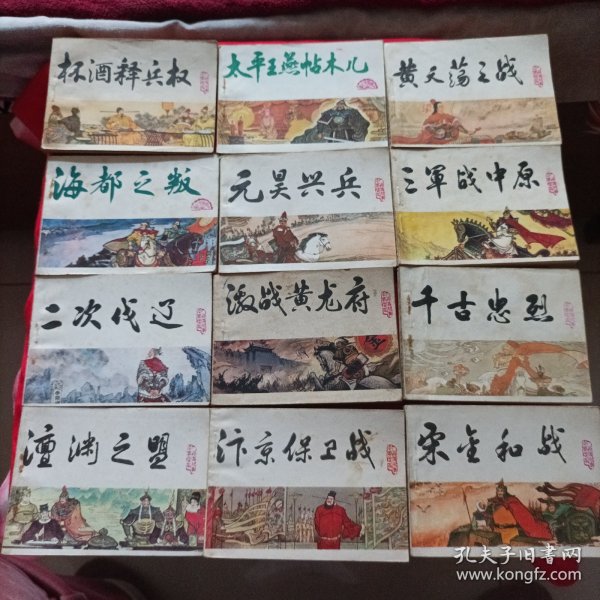 杯酒释兵权
太平王燕帖木儿
黄天荡之战
海都之叛
元昊兴兵
三軍战中原
二次伐辽
激战黄龙府
千古忠烈
澶渊之盟
汴京保卫战
宋金和战
孔夫子旧书网
www.kongfz.com